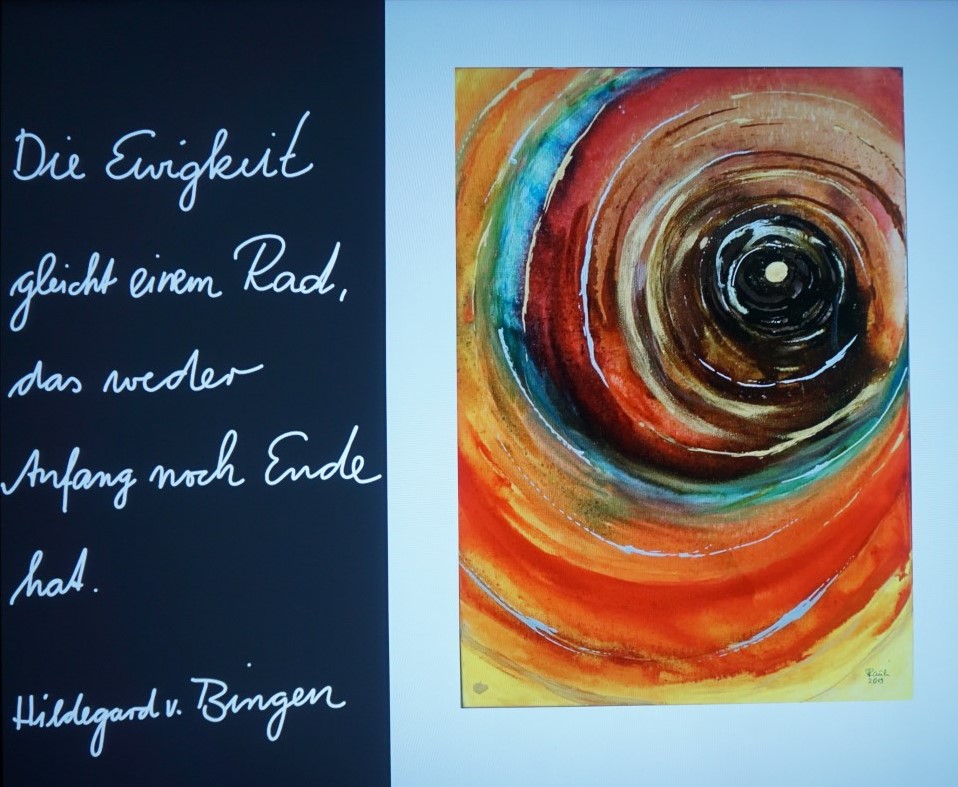 Die Ewigkeit
gleicht einem Rad,
das weder
Anfang noch Ende
hat.
Hildegard v. Bingen
2013